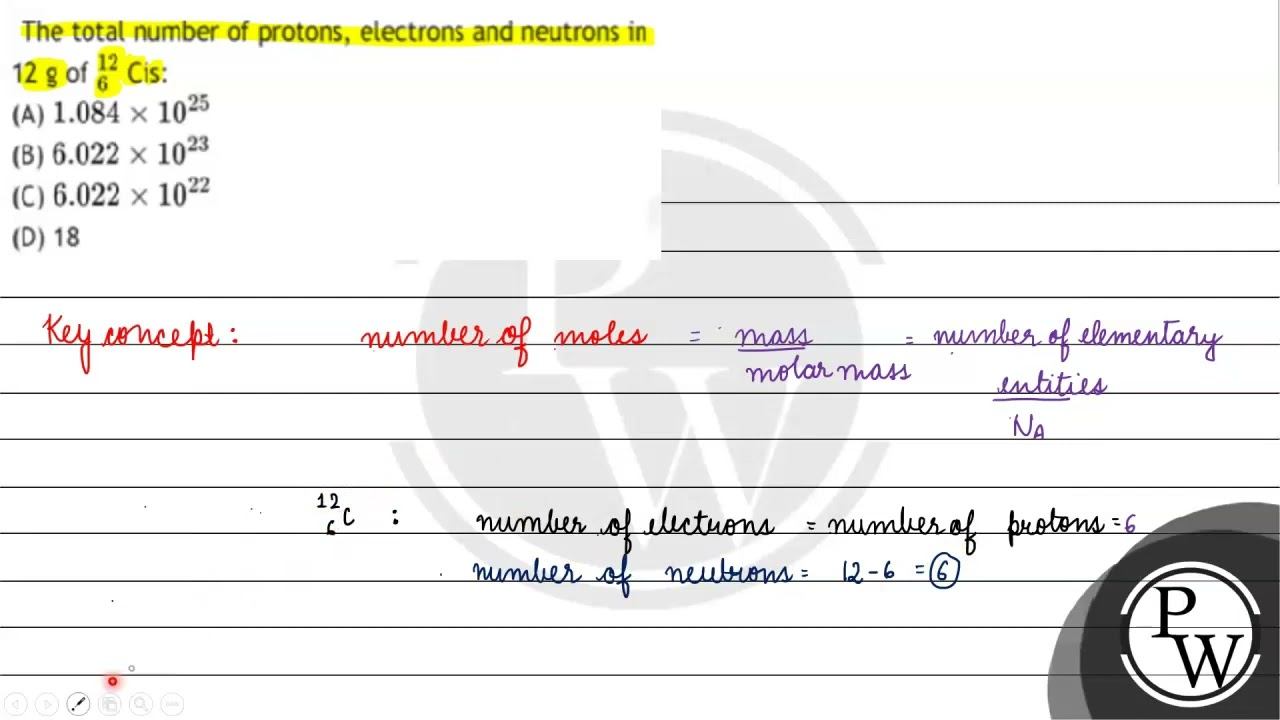 The total number of protons, electrons and neutrons in
12 g of ¹²₆ Cis:
(A) 1.084 × 10²⁵
(B) 6.022 × 10²³
(C) 6.022 × 10²²
(D) 18
Key concept : number of moles = mass / molar mass = number of elementary entities / N_A
¹²₆C : number of electrons = number of protons = 6
number of neutrons = 12 - 6 = 6
PW